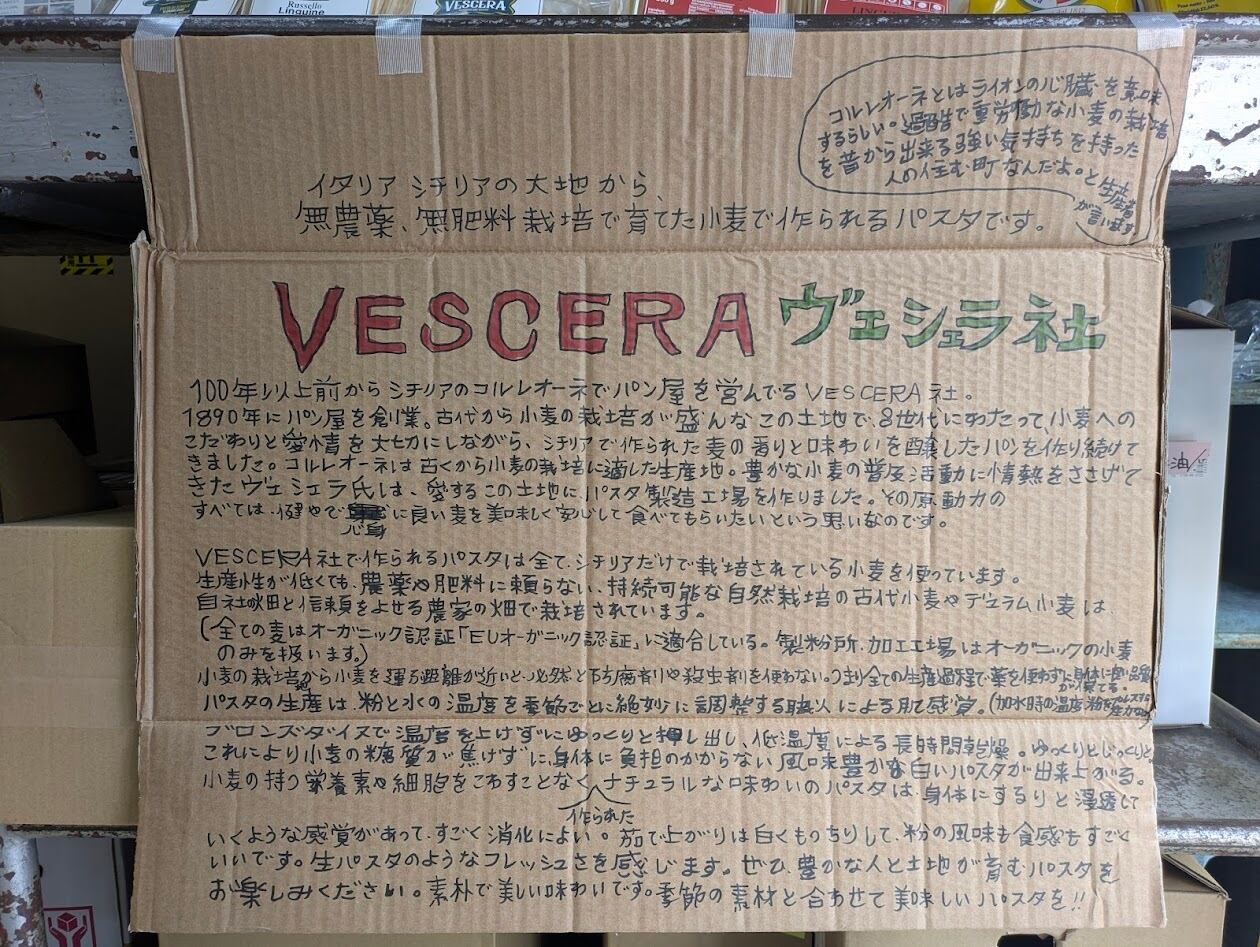 Russello
Linguine
VESCERA
コルレオーネとはライオンの心臓を意味
するらしい。過酷で重労働な小麦の栽培
を昔から出来る強い気持ちを持った
人の住む町なんだよ。と生産者
が言います
イタリア シチリアの大地から、
無農薬、無肥料栽培で育てた小麦で作られるパスタです。
VESCERA ヴェシェラ社
100年以上前からシチリアのコルレオーネでパン屋を営んでるVESCERA社。
1890年にパン屋を創業。古代から小麦の栽培が盛んなこの土地で、8世代にわたって、小麦への
こだわりと愛情を大切にしながら、シチリアで作られた麦の香りと味わいを醸したパンを作り続けて
きました。コルレオーネは古くから小麦の栽培に適した生産地。豊かな小麦の普及活動に情熱をささげて
きたヴェシェラ氏は、愛するこの土地にパスタ製造工場を作りました。その原動力の
すべては、健やかで心身に良い麦を美味しく安心して食べてもらいたいという思いなのです。
VESCERA社で作られるパスタは全て、シチリアだけで栽培されている小麦を使っています。
生産性が低くても、農薬や肥料に頼らない、持続可能な自然栽培の古代小麦やデュラム小麦は、
自社畑と信頼をよせる農家の畑で栽培されています。
(全ての麦はオーガニック認証「EUオーガニック認証」に適合している。製粉所、加工工場はオーガニックの小麦
のみを扱います。)
小麦の栽培地から小麦を運ぶ距離が近いと、必然と防腐剤や殺虫剤を使わない。つまり全ての生産過程で薬を使わずに身体に良い品質
が保てる。
パスタの生産は、粉と水の温度を季節ごとに絶妙に調整する職人による肌感覚。(加水時の温度、粉を
ブロンズダイスで温度を上げずにゆっくりと押し出し、低温度による長時間乾燥。ゆっくりとじっくりと
これにより小麦の糖質が焦げずに、身体に負担のかからない、風味豊かな白いパスタが出来上がる。
小麦の持つ栄養素や細胞をこわすことなく作られたナチュラルな味わいのパスタは、身体にするりと浸透して
いくような感覚があって、すごく消化によい。茹で上がりは白くもっちりして、粉の風味も食感もすごく
いいです。生パスタのようなフレッシュさを感じます。ぜひ、豊かな人と土地が育むパスタを
お楽しみください。素朴で美しい味わいです。季節の素材と合わせて美味しいパスタを!!
油